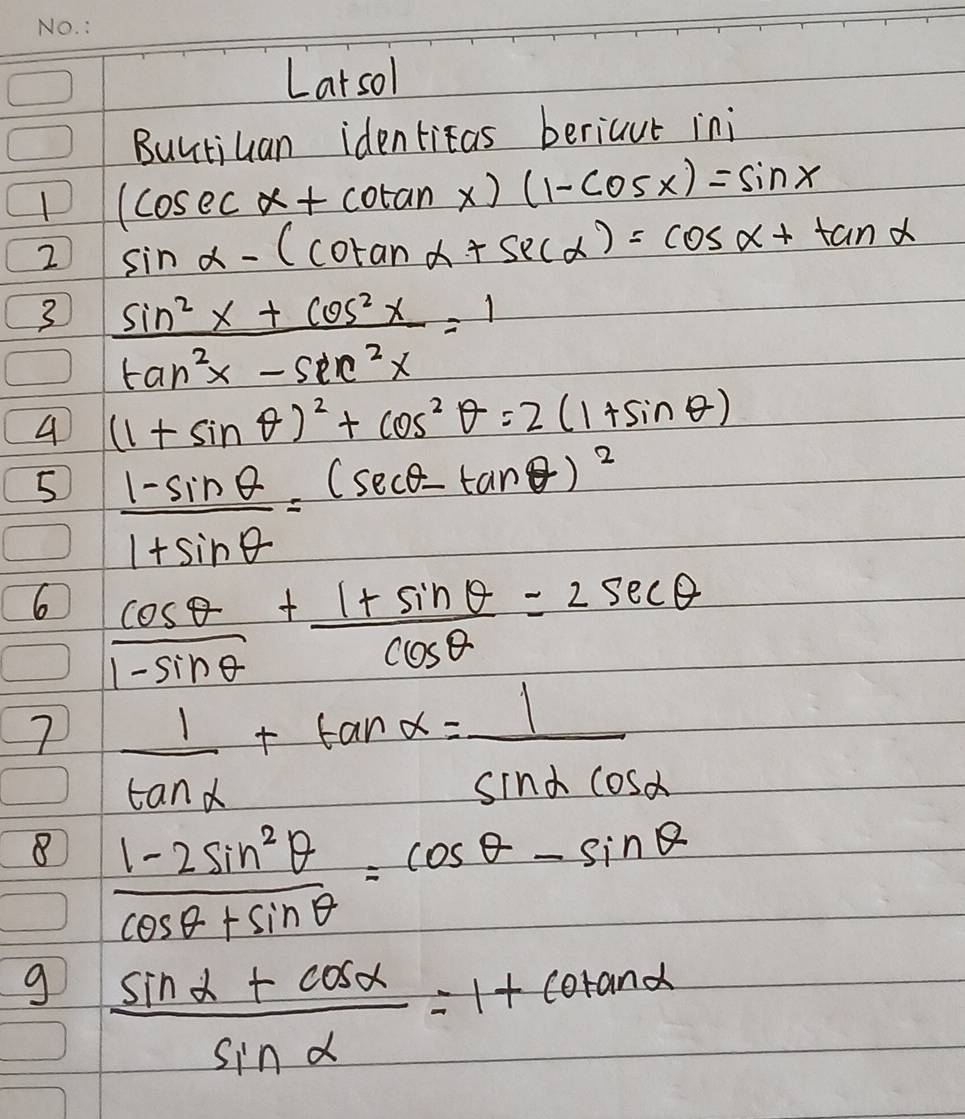 No.:
Latsol
Buktikan identitas berikut ini
1 (cosec x + cotan x) (1 - cos x) = sin x
2 sin α - (cotan α + sec α) = cos α + tan α
3 sin² x + cos² x = 1
tan² x - sec² x
4 (1 + sin θ)² + cos² θ = 2 (1 + sin θ)
5 1 - sin θ = (sec θ - tan θ)²
1 + sin θ
6 cos θ + 1 + sin θ = 2 sec θ
1 - sin θ cos θ
7 1 + tan α = 1
tan α sin α cos α
8 1 - 2 sin² θ = cos θ - sin θ
cos θ + sin θ
9 sin α + cos α = 1 + cotan α
sin α